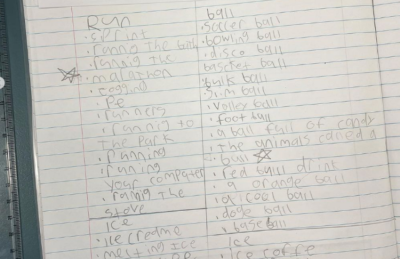 Run
. sprint
. running the
. marathon
. Pe
. runners
. runnig to
the park
. running
. running
your computer
. runnig the
stove
ICE
. ice creame
. melting ice
ball
. soccer ball
. bowling ball
. disco ball
basket ball
. volley ball
. foot ball
. a ball full of candy
. the animals called a
bull
. red bull drink
. a orange ball
. a cool ball
. dodge ball
. base ball
Ice
. ice coffe